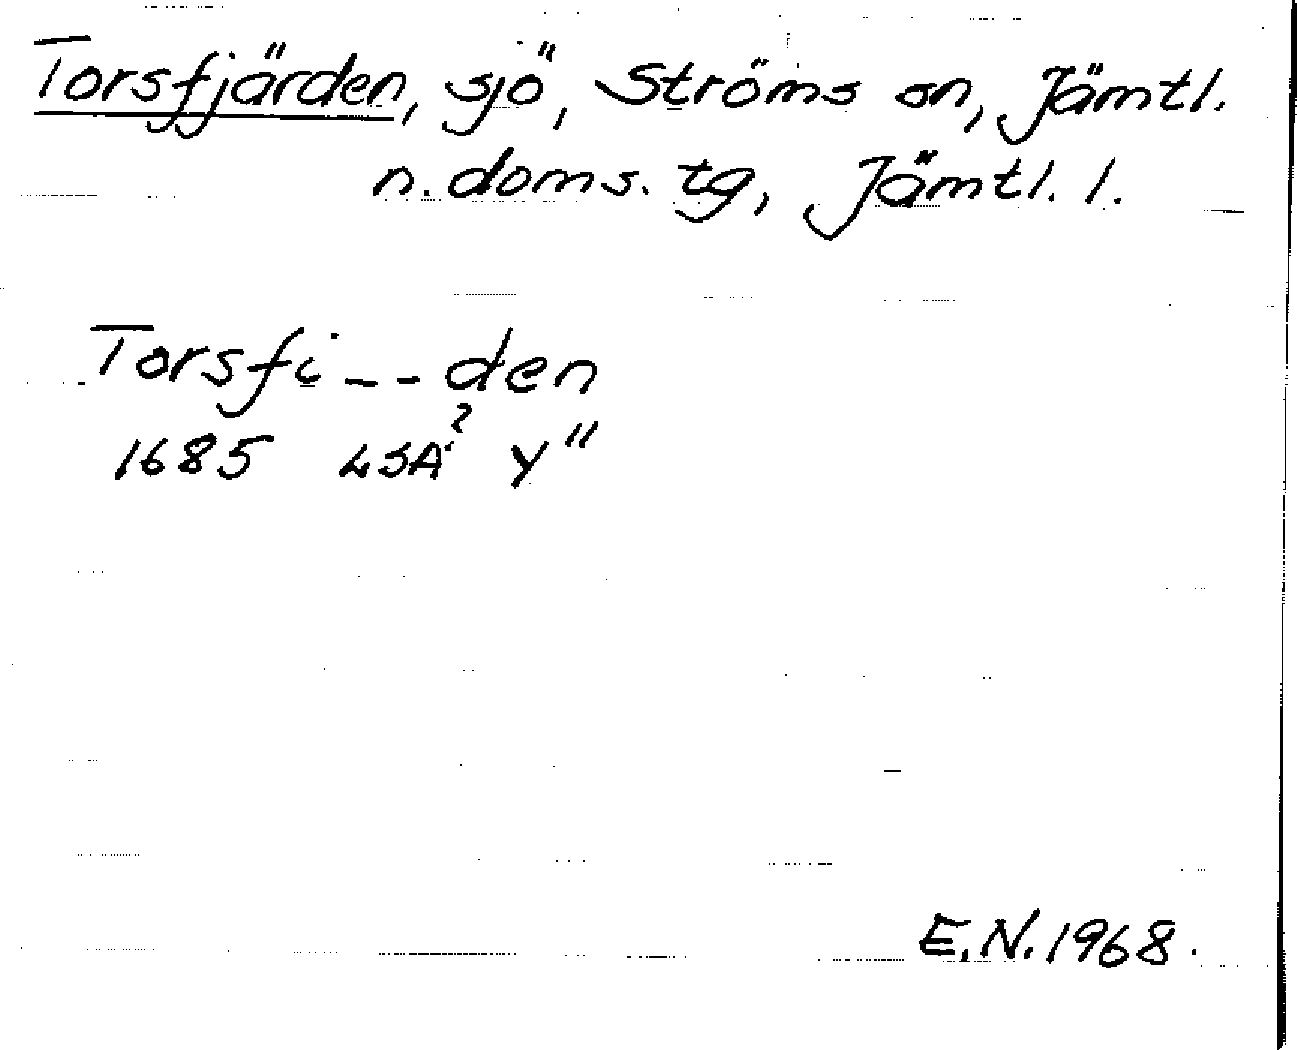 Torsfjärden, sjö, Ströms sn, Jämtl.
n. doms. tg, Jämtl. l.
Torsfi--den
1685 LSA² Y"
E.N. 1968.